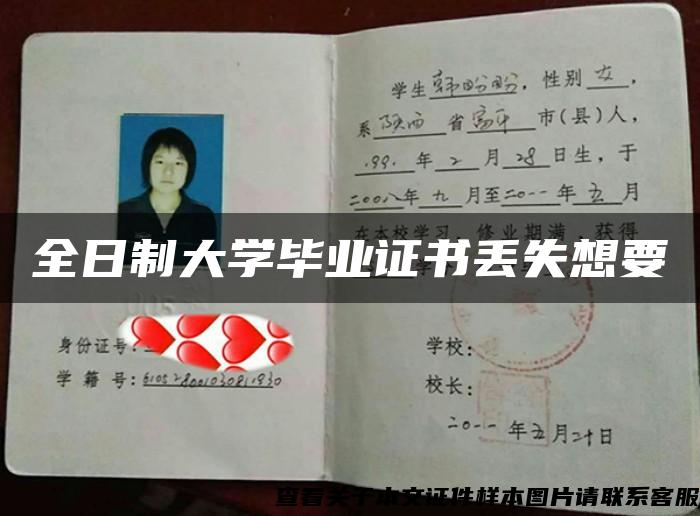 学生韩盼盼,性别女,
系陕西省富平市(县)人,
1991年2月28日生,于
二00八年九月至二0一一年五月
在本校学习,修业期满,获得
全日制大学毕业证书丢失想要
身份证号:
学籍号:610528001030811930
学校:
校长:
二0一一年五月二十日
查看关于本文证件样本图片请联系客服